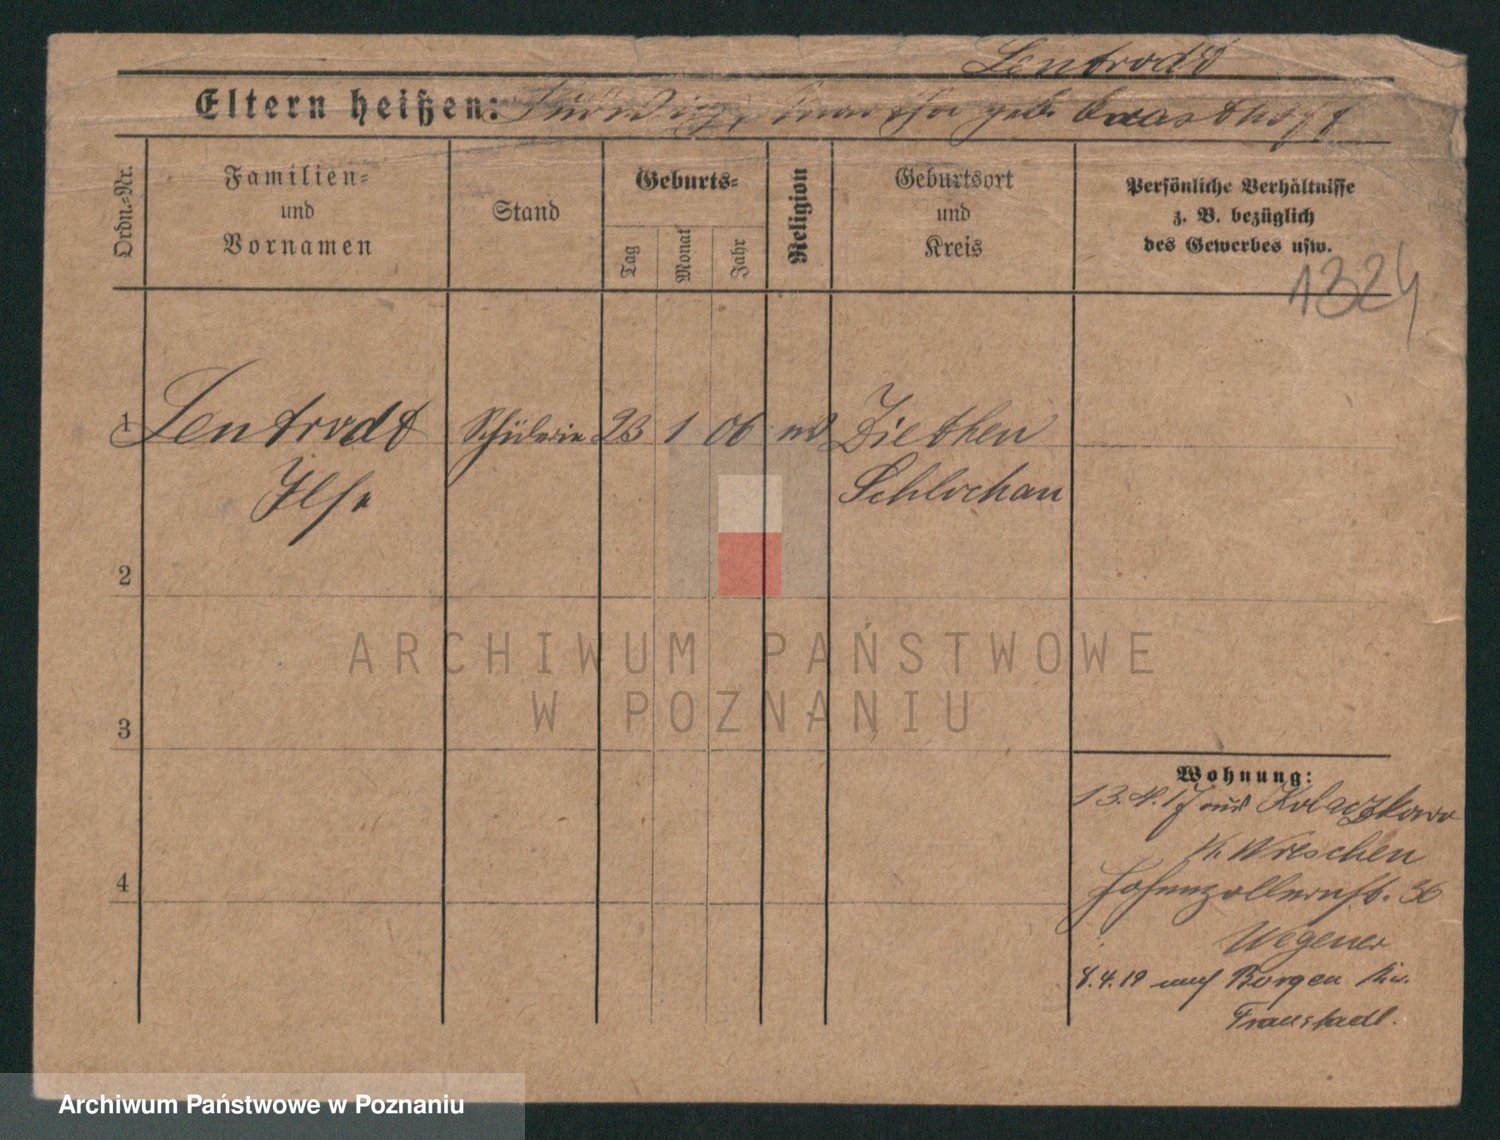 Lentrodt
Eltern heißen: Ludwig, Martha geb.
Ordn.-Nr.
Familien-
und
Vornamen
Stand
Geburts-
Tag
Monat
Jahr
Religion
Geburtsort
und
Kreis
Persönliche Verhältnisse
z. B. bezüglich
des Gewerbes usw.
1324
1 Lentrodt Schülerin 23 1 06 Ziethen
Ilse Schlochau
2
3
4
Wohnung:
13.4.17 aus Kolaczkowo
Wreschen
Hohenzollernst. 36
Wegener
8.4.19 nach Borgen Kr.
Fraustadt.
ARCHIWUM PAŃSTWOWE
W POZNANIU
Archiwum Państwowe w Poznaniu